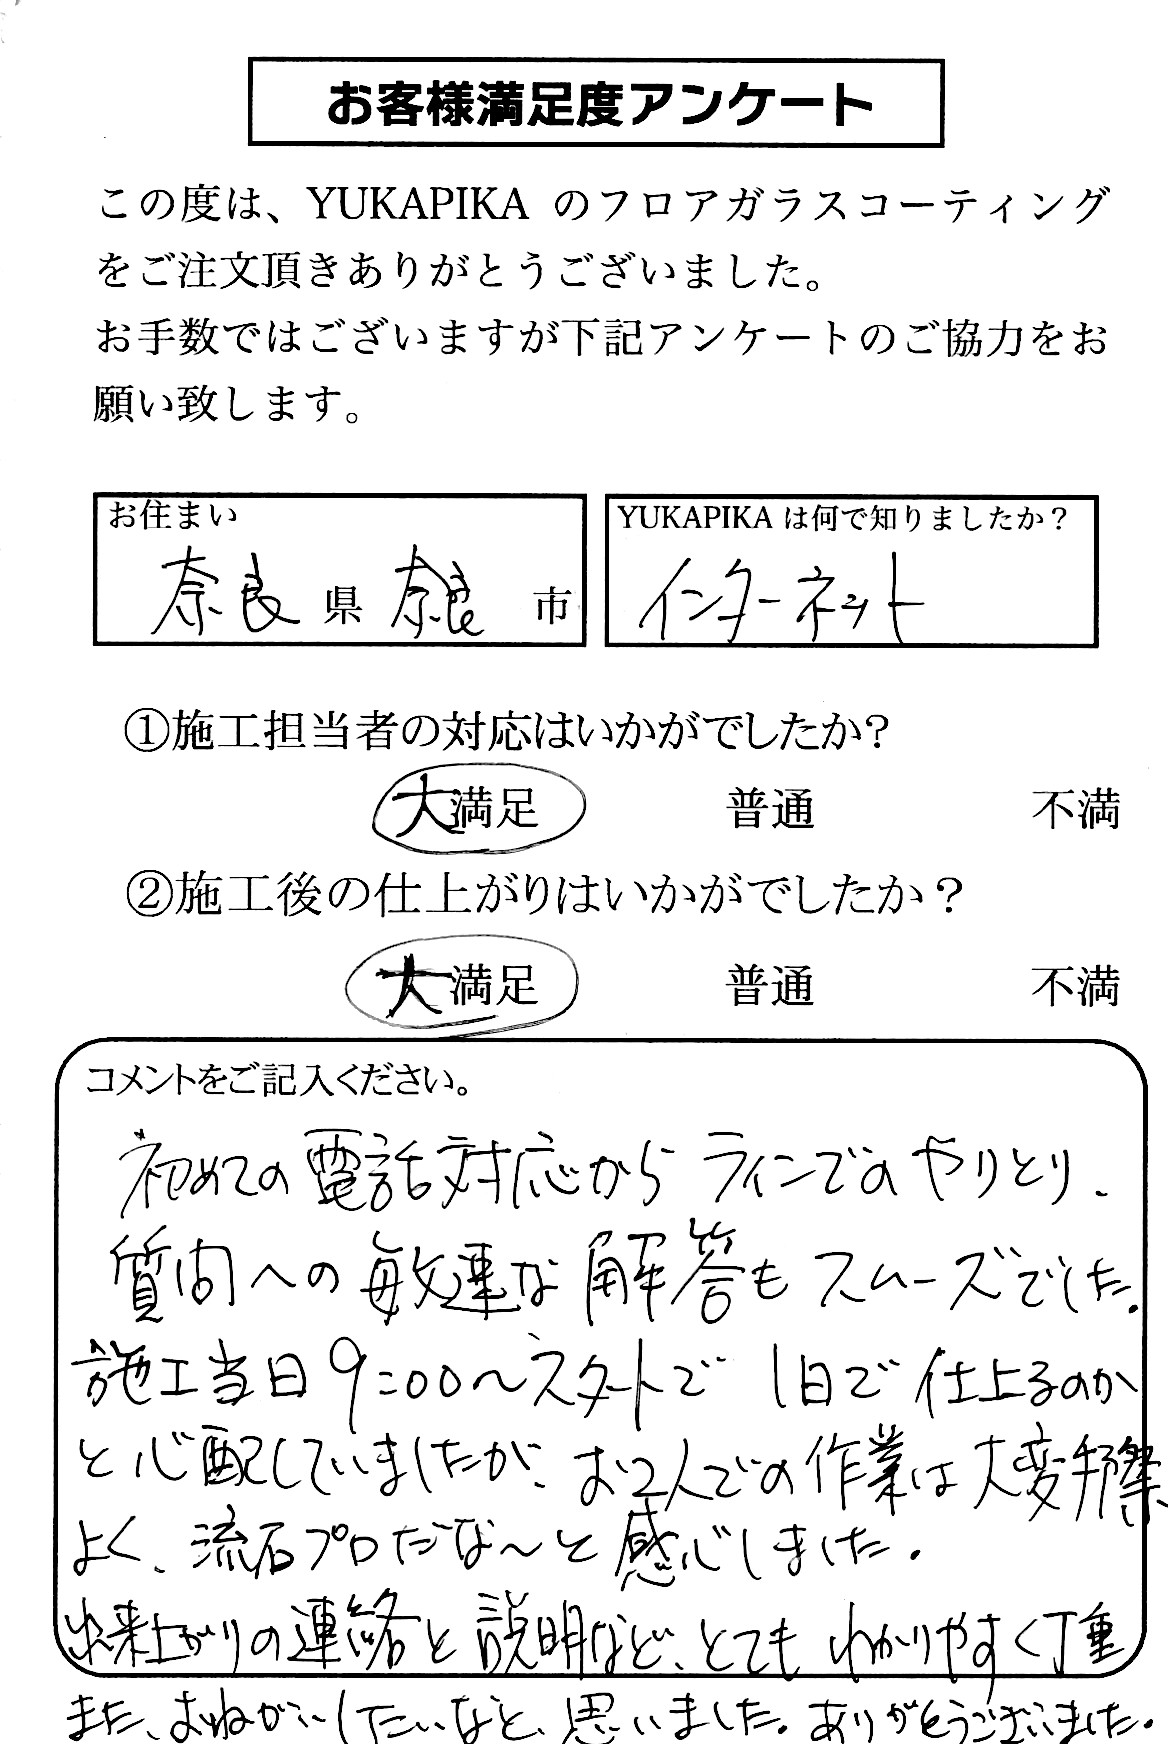 お客様満足度アンケート
この度は、YUKAPIKA のフロアガラスコーティング
をご注文頂きありがとうございました。
お手数ではございますが下記アンケートのご協力をお
願い致します。
お住まい
奈良県 奈良 市
YUKAPIKA は何で知りましたか？
インターネット
①施工担当者の対応はいかがでしたか?
大満足 普通 不満
②施工後の仕上がりはいかがでしたか？
大満足 普通 不満
コメントをご記入ください。
初めての電話対応からラインでのやりとり、
質問への敏速な解答もスムーズでした。
施工当日9:00〜スタートで1日で仕上るのか
と心配していましたが、お2人での作業は大変手際
よく、流石プロだな〜と感心しました。
出来上がりの連絡と説明など、とてもわかりやすく丁重
また、おねがいしたいなと、思いました。ありがとうございました。